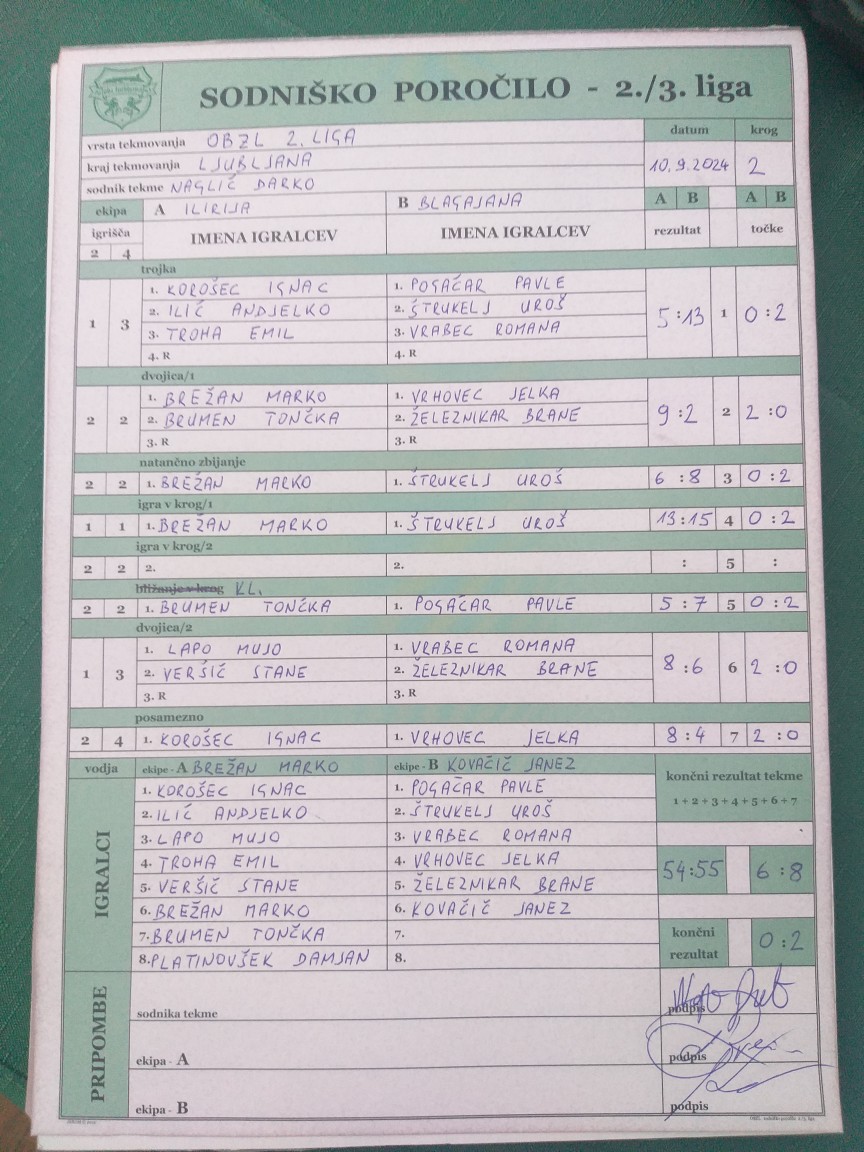 SODNIŠKO POROČILO - 2./3. liga
vrsta tekmovanja OBZL 2. LIGA datum krog
kraj tekmovanja LJUBLJANA 10.9.2024 2
sodnik tekme NAGLIČ DARKO
ekipa A ILIRIJA B BLAGAJANA A B A B
igrišča IMENA IGRALCEV IMENA IGRALCEV rezultat točke
2 4
trojka
1. KOROŠEC IGNAC 1. POGAČAR PAVLE
2. ILIĆ ANDJELKO 2. ŠTRUKELJ UROŠ
1 3 5:13 1 0:2
3. TROHA EMIL 3. VRABEC ROMANA
4. R 4. R
dvojica/1
1. BREŽAN MARKO 1. VRHOVEC JELKA
2 2 2. BRUMEN TONČKA 2. ŽELEZNIKAR BRANE 9:2 2 2:0
3. R 3. R
natančno zbijanje
2 2 1. BREŽAN MARKO 1. ŠTRUKELJ UROŠ 6:8 3 0:2
igra v krog/1
1 1 1. BREŽAN MARKO 1. ŠTRUKELJ UROŠ 13:15 4 0:2
igra v krog/2
2 2 2. 2. : 5 :
bližanje v krog KL.
2 2 1. BRUMEN TONČKA 1. POGAČAR PAVLE 5:7 5 0:2
dvojica/2
1. LAPO MUJO 1. VRABEC ROMANA
1 3 2. VERŠIČ STANE 2. ŽELEZNIKAR BRANE 8:6 6 2:0
3. R 3. R
posamezno
2 4 1. KOROŠEC IGNAC 1. VRHOVEC JELKA 8:4 7 2:0
vodja ekipe - A BREŽAN MARKO ekipe - B KOVAČIČ JANEZ končni rezultat tekme
1+2+3+4+5+6+7
IGRALCI
1. KOROŠEC IGNAC 1. POGAČAR PAVLE
2. ILIĆ ANDJELKO 2. ŠTRUKELJ UROŠ
3. LAPO MUJO 3. VRABEC ROMANA
4. TROHA EMIL 4. VRHOVEC JELKA 54:55 6:8
5. VERŠIČ STANE 5. ŽELEZNIKAR BRANE
6. BREŽAN MARKO 6. KOVAČIČ JANEZ
7. BRUMEN TONČKA 7. končni rezultat 0:2
8. PLATINOVŠEK DAMJAN 8.
PRIPOMBE
sodnika tekme podpis
ekipa - A podpis
ekipa - B podpis